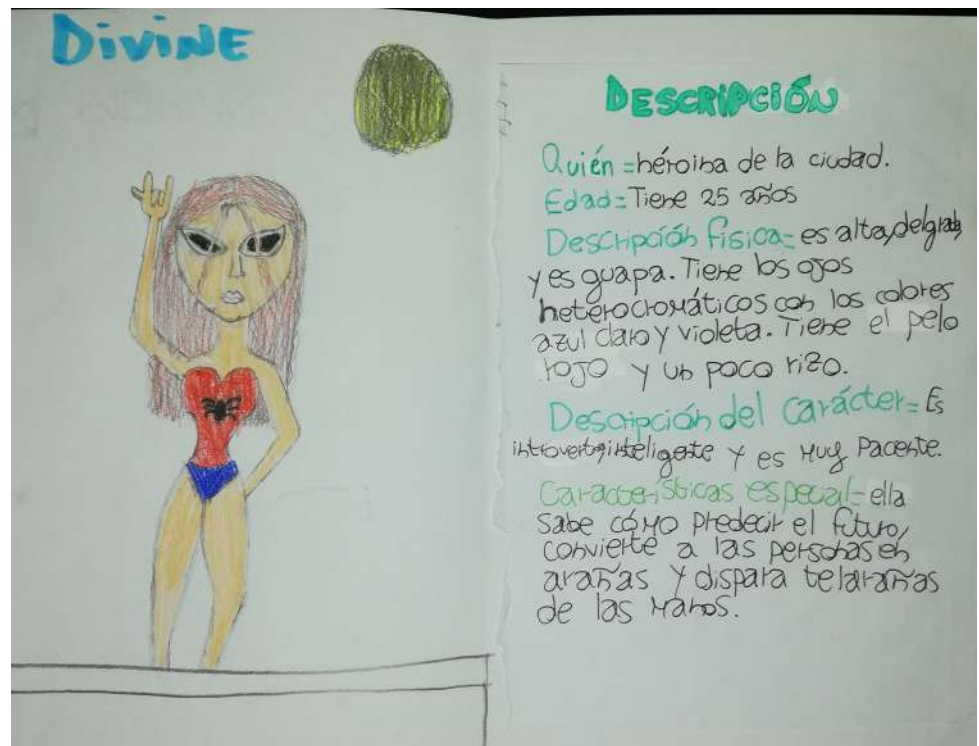 DiviNE
DESCRIPCIÓN
Quién = héroina de la ciudad.
Edad = Tiene 25 años
Descripción física = es alta, delgada,
y es guapa. Tiene los ojos
heterocromáticos con los colores
azul claro y violeta. Tiene el pelo
rojo y un poco rizo.
Descripción del carácter = Es
introverta, inteligente y es muy Pacente.
Características especial = ella
sabe cómo predecir el futuro,
convierte a las personas en
arañas y dispara telarañas
de las manos.